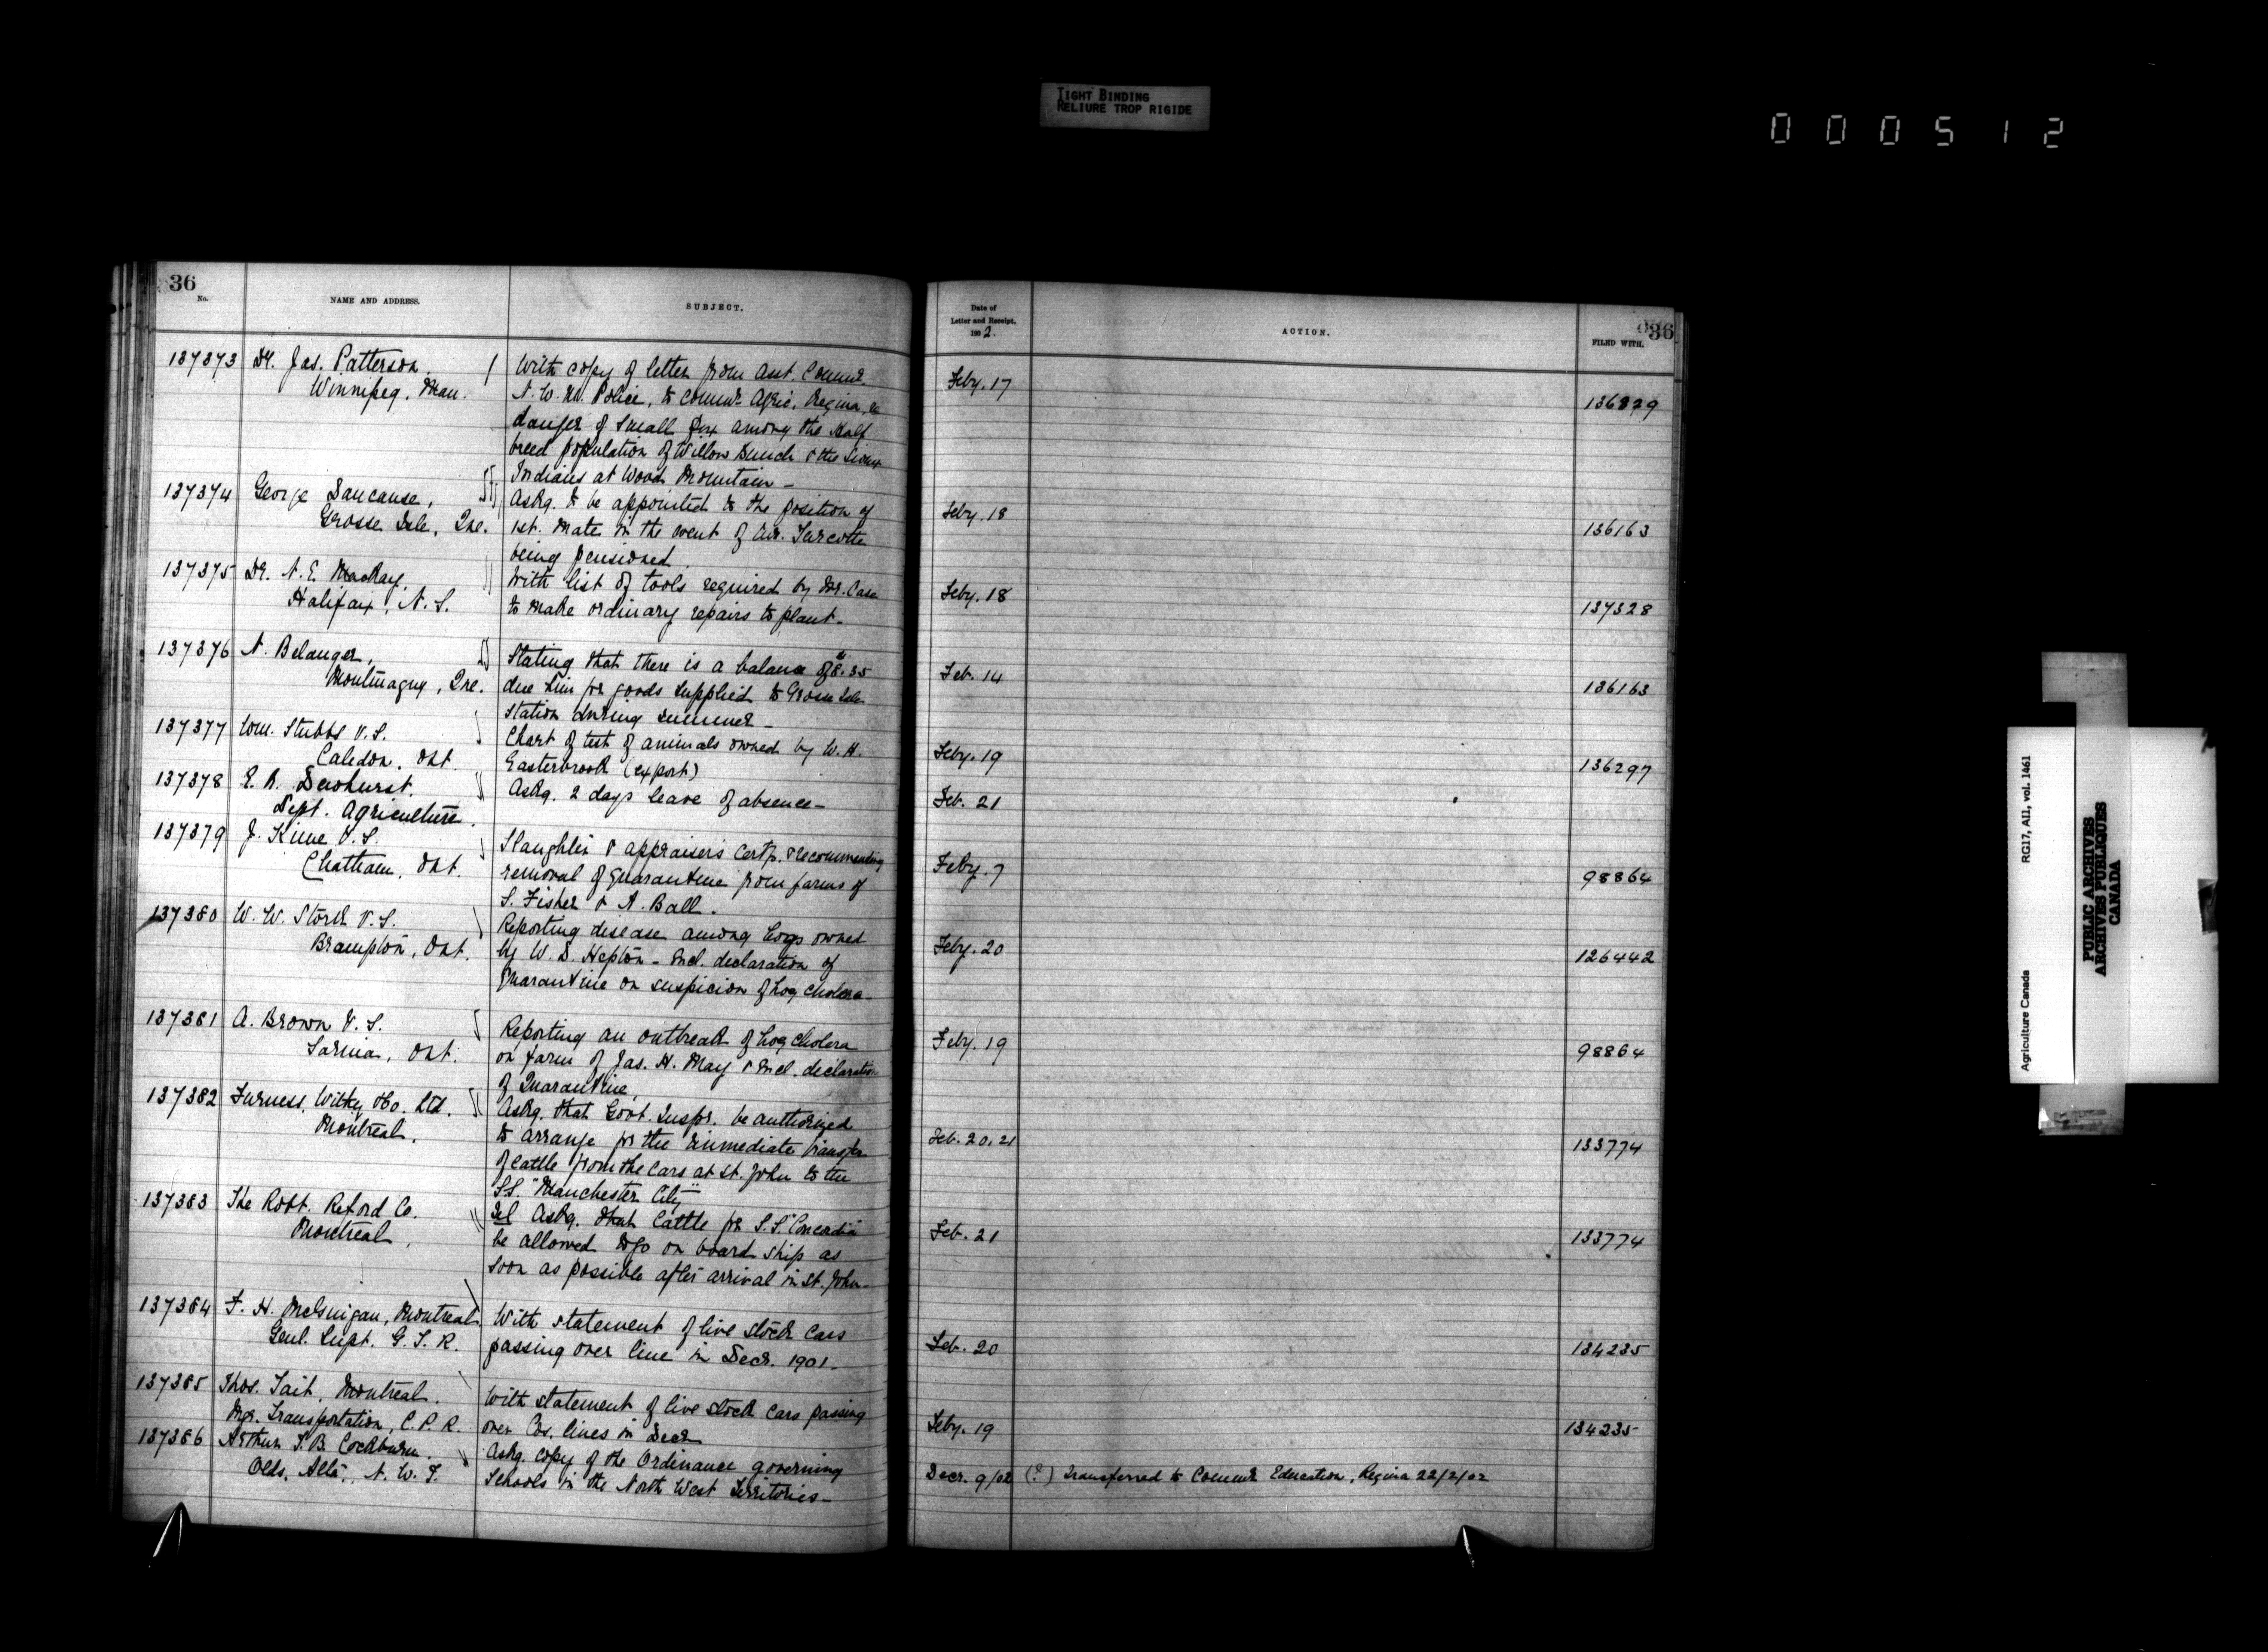 TIGHT BINDING
RELIURE TROP RIGIDE
000512
36
No.
NAME AND ADDRESS.
SUBJECT.
137373 Dr. Jas. Patterson.
Winnipeg, Man.
With copy of letter from Asst. Commr.
N. W. M. Police, to Commr. Agric. Regina, re
danger of Small Pox among the Half
breed population of Willow Bunch & the Sioux
Indians at Wood Mountain -
137374 George Lancause,
Grosse Isle, Que.
Askg. to be appointed to the position of
1st. Mate in the event of Turcotte
being pensioned.
137375 Dr. N. E. MacKay,
Halifax, N. S.
With list of tools required by Mr. Case
to make ordinary repairs to plant -
137376 N. Belanger,
Montmagny, Que.
Stating that there is a balance of $8.35
due him for goods supplied to Grosse Isle
station during summer -
137377 Wm. Stubbs V. S.
Caledon, Ont.
Chart of test of animals owned by W. H.
Easterbrook (export)
137378 E. B. Dewhurst.
Dept. Agriculture.
Askg. 2 days leave of absence -
137379 J. Kime V. S.
Chatham, Ont.
Slaughter & appraisers certf. & recommending
removal of quarantine from farms of
S. Fisher & A. Ball.
137380 W. W. Stork V. S.
Brampton, Ont.
Reporting disease among hogs owned
by W. D. Hepton - Encl. declaration of
Quarantine on suspicion of hog cholera -
137381 A. Brown V. S.
Sarnia, Ont.
Reporting an outbreak of hog cholera
on farm of Jas. H. May & Encl. declaration
of Quarantine,
137382 Furness, Withy & Co. Ltd.
Montreal.
Askg. that Govt. Inspr. be authorized
to arrange for the immediate transfer
of cattle from the cars at St. John to the
S.S. "Manchester City"
137383 The Robt. Reford Co.
Montreal,
Tel Askg. that Cattle for S.S. "Concordia"
be allowed to go on board ship as
soon as possible after arrival in St. John -
137384 F. H. McGuigan, Montreal
Genl. Supt. G. T. R.
With statement of live stock cars
passing over line in Decr. 1901 -
137385 Thos. Tait, Montreal.
Mgr. Transportation, C. P. R.
With statement of live stock cars passing
over Cos. lines in Decr
137386 Arthur T. B. Cockburn.
Olds, Alta., N. W. T.
Askg. copy of the Ordinance governing
Schools in the North West Territories -
Date of
Letter and Receipt.
1902.
ACTION.
FILED WITH.
36
Feby. 17
136829
Feby. 18
136163
Feby. 18
137328
Feb. 14
136163
Feby. 19
136297
Feb. 21
Feby. 7
98864
Feby. 20
126442
Feby. 19
98864
Feb. 20, 21
133774
Feb. 21
133774
Feb. 20
134235
Feby. 19
134235
Decr. 9/02 (?) Transferred to Commr Education, Regina 22/2/02
Agriculture Canada
RG17, AII, vol. 1461
PUBLIC ARCHIVES
ARCHIVES PUBLIQUES
CANADA